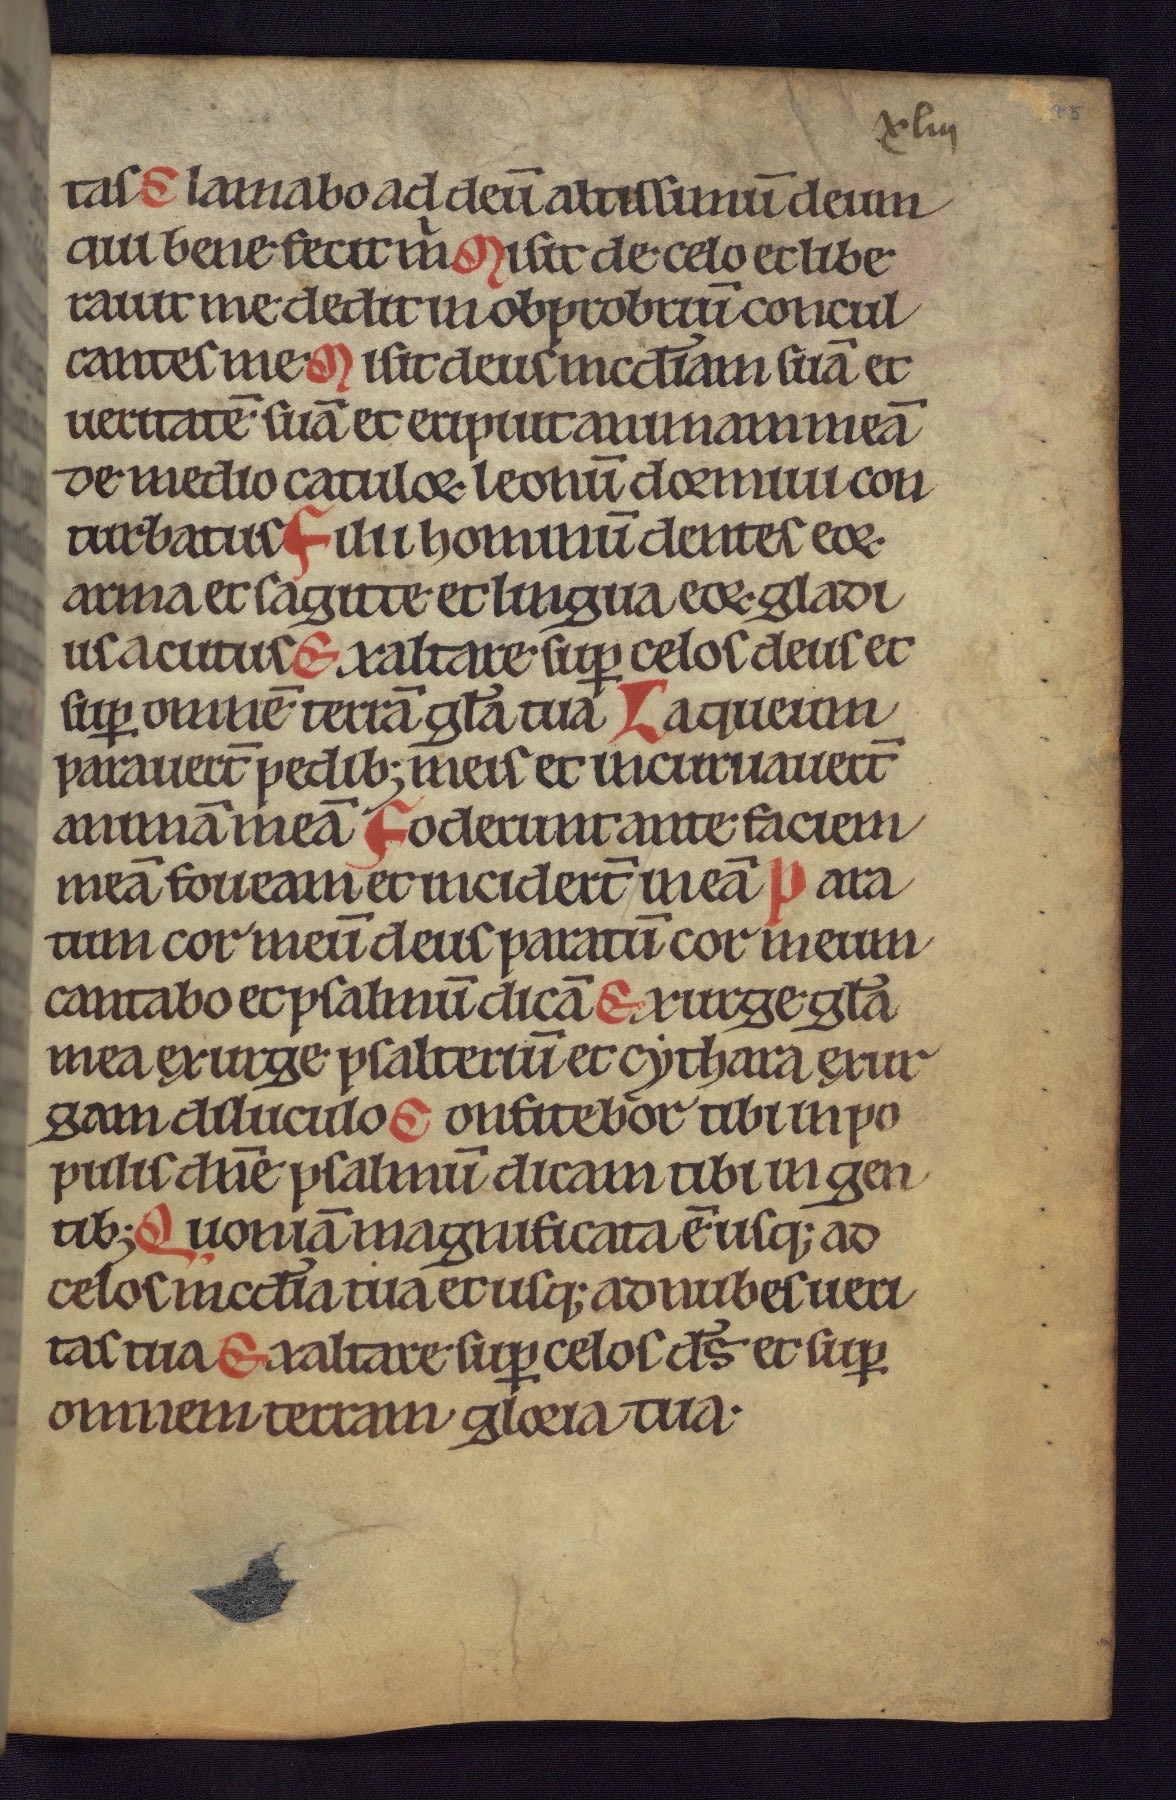 xliii
45
tas Clamabo ad deū altissimū deum
qui bene fecit m̄ Misit de celo et libe
rauit me dedit in obprobriū concul
cantes me Misit deus mcd̄iam suā et
ueritatē suā et eripuit animam meā
de medio catuloꝝ leonū dormiui con
turbatus Filii hominū dentes eoꝝ
arma et sagitte et lingua eoꝝ gladi
us acutus Exaltare suꝑ celos deus et
suꝑ omnē terrā gl̄a tua Laqueum
parauert̄ pedib; meis et incuruauert̄
animā meā Foderunt ante faciem
meā foueam et inciderт̄ in eā Para
tum cor meū deus paratū cor meum
cantabo et psalmū dicā Exurge gl̄a
mea exurge psalteriū et cythara exur
gam diluculo Confitebor tibi in po
pulis dn̄e psalmū dicam tibi in gen
tib; Quoniā magnificata ē usq; ad
celos mcd̄ia tua et usq; ad nubes ueri
tas tua Exaltare suꝑ celos d̄s et suꝑ
omnem terram gloria tua.